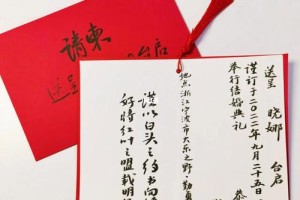 请柬
送呈
台启
送呈 晓娜 台启
谨订于二〇二二年九月二十五日
举行结婚典礼
恭
地点浙江宁波市大东之野
谨以白头之约书向
好将红叶之盟载明